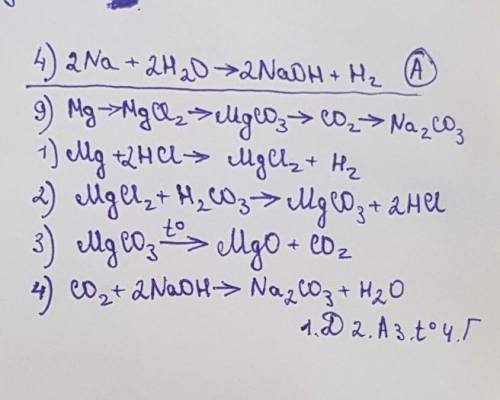 4) 2Na + 2H₂O → 2NaOH + H₂ A
9) Mg → MgCl₂ → MgCO₃ → CO₂ → Na₂CO₃
1) Mg + 2HCl → MgCl₂ + H₂
2) MgCl₂ + H₂CO₃ → MgCO₃ + 2HCl
3) MgCO₃ t° → MgO + CO₂
4) CO₂ + 2NaOH → Na₂CO₃ + H₂O
1. Д 2. А 3. t° 4. Г